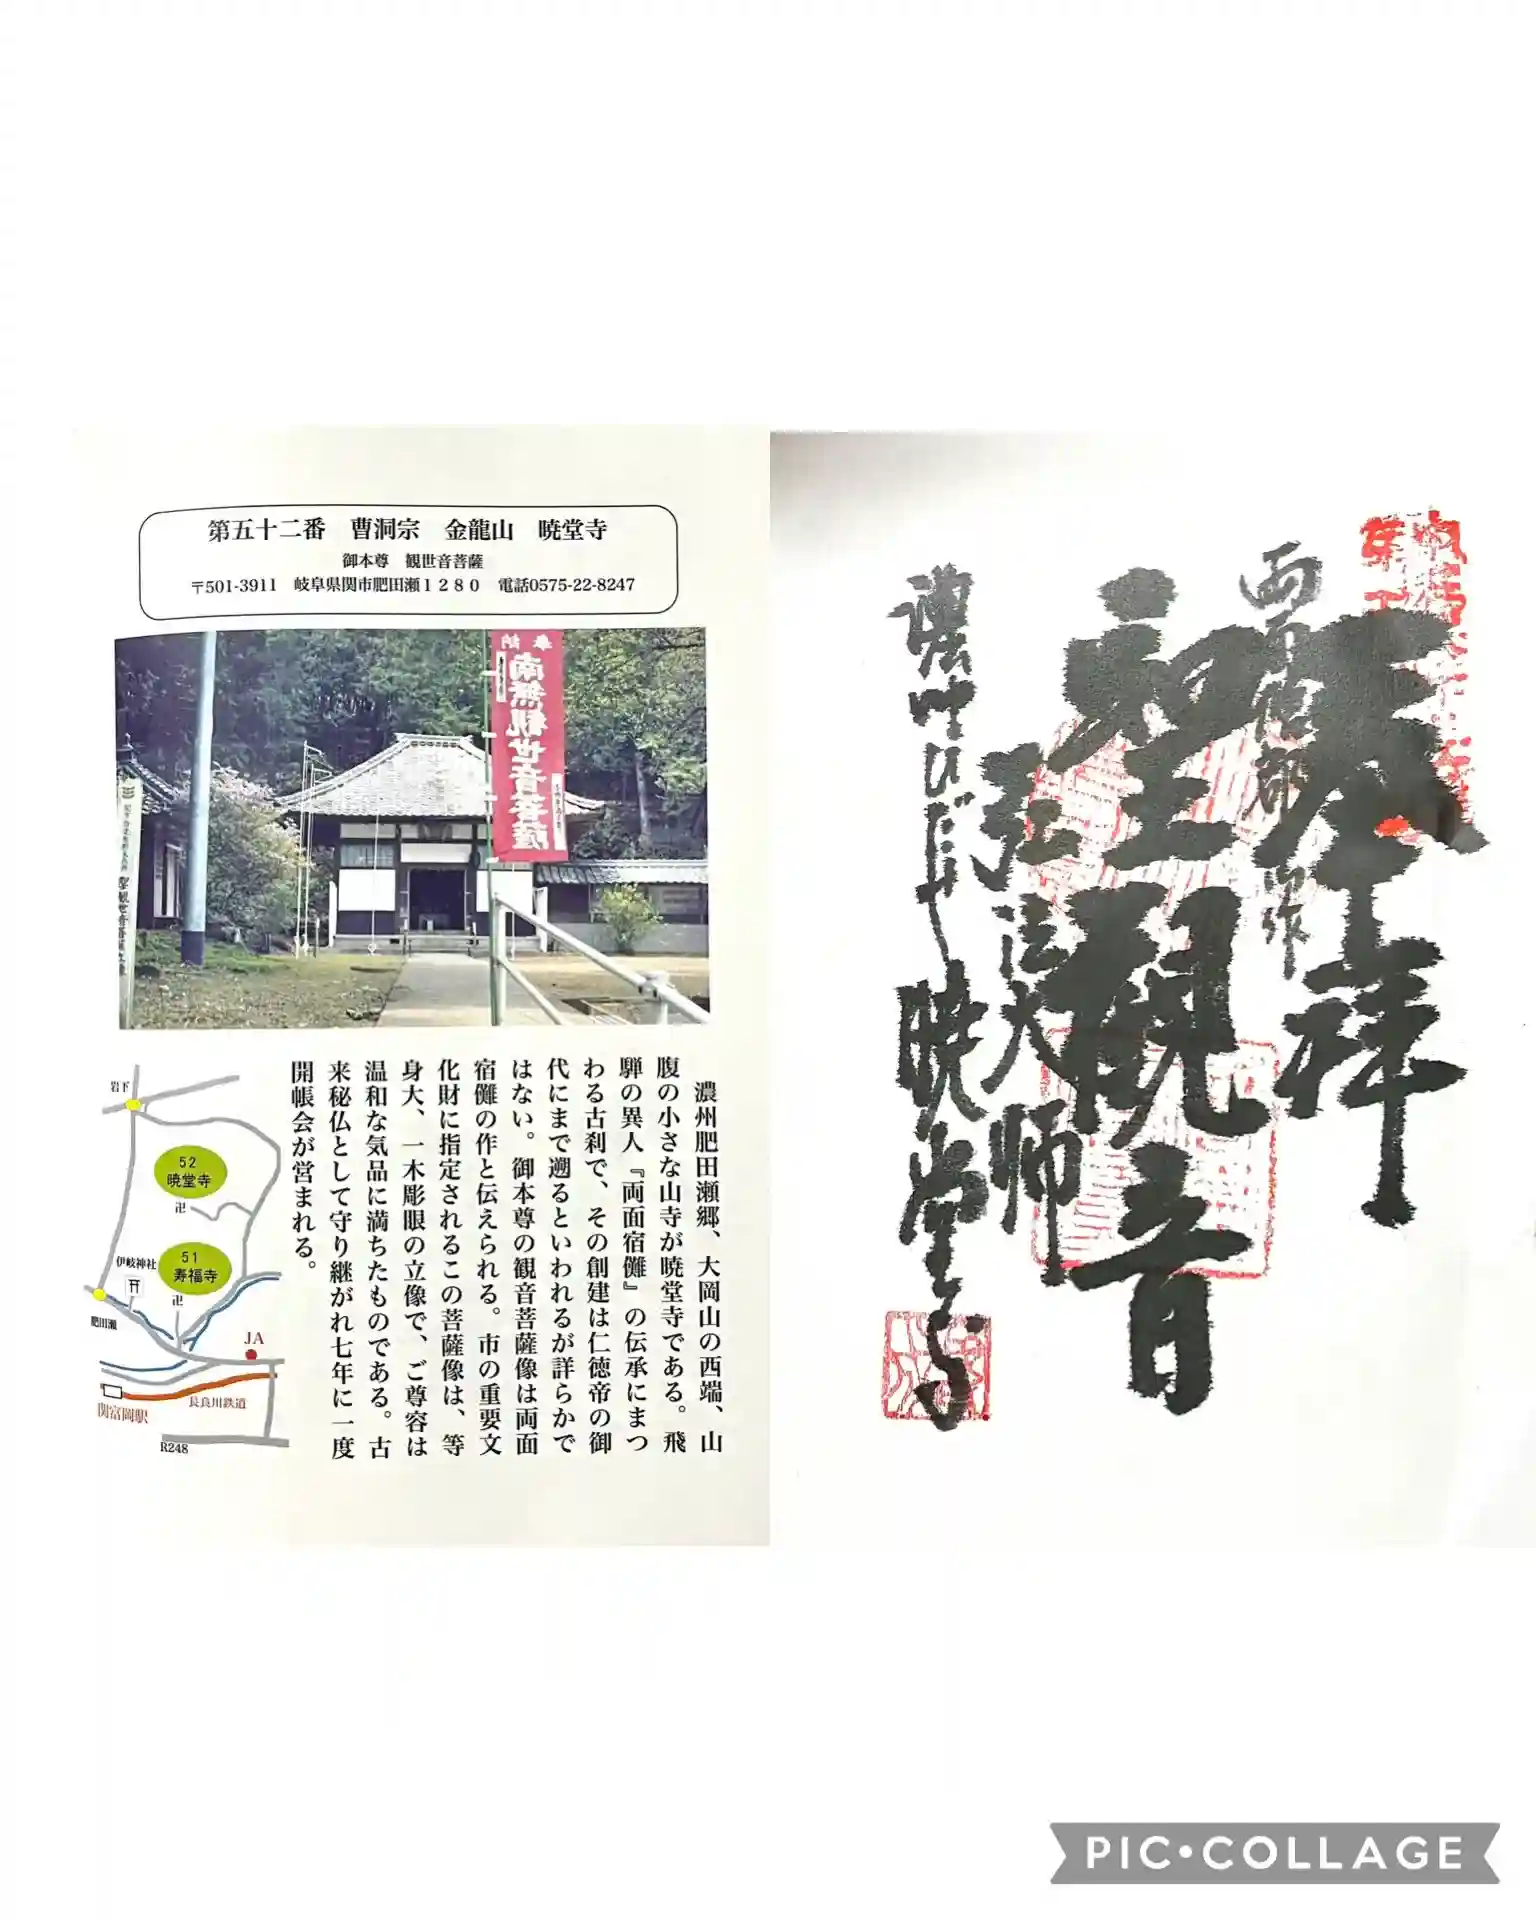 第五十二番　曹洞宗　金龍山　暁堂寺
御本尊　観世音菩薩
〒501-3911　岐阜県関市肥田瀬１２８０　電話0575-22-8247
奉納
南無観世音菩薩
濃州肥田瀬郷、大岡山の西端、山
腹の小さな山寺が暁堂寺である。飛
騨の異人『両面宿儺』の伝承にまつ
わる古刹で、その創建は仁徳帝の御
代にまで遡るといわれるが詳らかで
はない。御本尊の観音菩薩像は両面
宿儺の作と伝えられる。市の重要文
化財に指定されるこの菩薩像は、等
身大、一木彫眼の立像で、ご尊容は
温和な気品に満ちたものである。古
来秘仏として守り継がれ七年に一度
開帳会が営まれる。
岩下
52
暁堂寺
卍
伊岐神社
51
寿福寺
卍
肥田瀬
JA
長良川鉄道
関富岡駅
R248
奉拝
聖観音
弘法大師
暁堂寺
PIC•COLLAGE